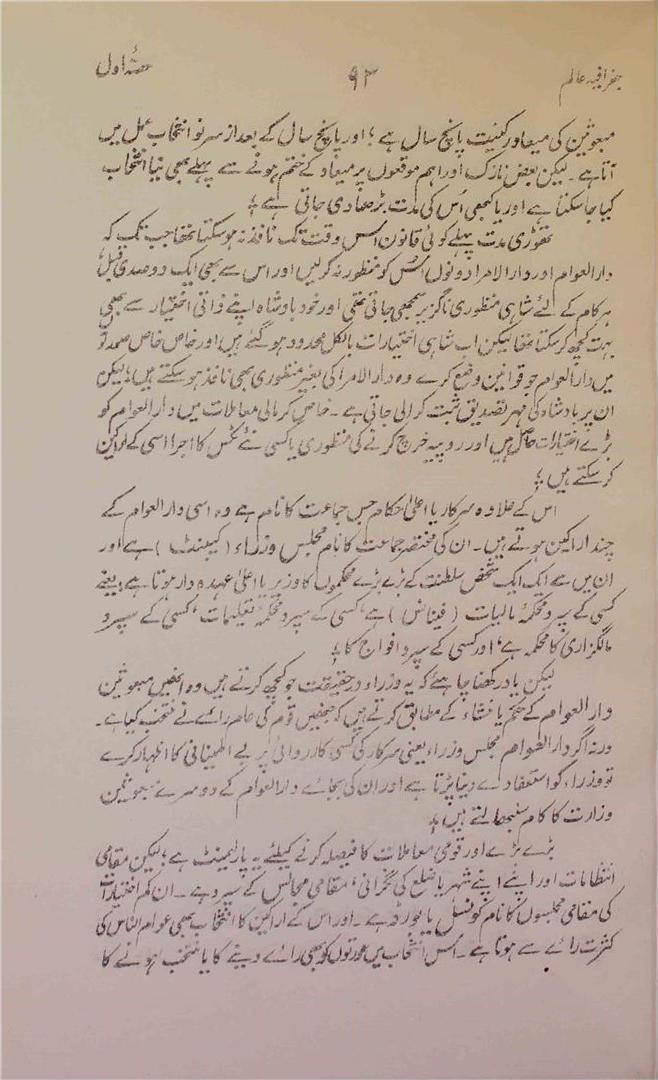 جغرافیہ عالم ۹۲ حصۂ اول
مبعوثین کی میعاد رکنیت پانچ سال ہے ؛ اور پانچ سال کے بعد از سرنو انتخاب عمل میں
آتا ہے ۔ لیکن بعض نازک اور اہم موقعوں پر میعاد کے ختم ہونے سے پہلے بھی نیا انتخاب
کیا جا سکتا ہے اور یا کبھی اُس کی مدت بڑھا دی جاتی ہے ؛
تھوڑی مدت پہلے کوئی قانون اُس وقت تک نافذ نہ ہو سکتا تھا جب تک کہ
دار العوام اور دار الامرا دونوں اُس کو منظور نہ کر لیں اور اس سے بھی ایک دو صدی قبل
ہر کام کے لئے شاہی منظوری ناگزیر سمجھی جاتی تھی اور خود بادشاہ اپنے ذاتی اختیار سے بھی
بہت کچھ کر سکتا تھا لیکن اب شاہی اختیارات بالکل محدود ہو گئے ہیں اور خاص خاص صورتوں
میں دار العوام جو قوانین وضع کرے وہ دار الامرا کی بغیر منظوری بھی نافذ ہو سکتے ہیں ؛ لیکن
ان پر بادشاہ کی مہر تصدیق ثبت کرالی جاتی ہے ۔ خاص کر مالی معاملات میں دار العوام کو
بڑے اختیارات حاصل ہیں اور روپیہ خرچ کرنے کی منظوری یا کسی نئے ٹکس کا اجرا اسی کے اراکین
کر سکتے ہیں ؛
اس کے علاوہ سرکار یا اعلیٰ حکام جس جماعت کا نام ہے وہ اسی دار العوام کے
چند اراکین ہوتے ہیں ۔ ان کی مختصر جماعت کا نام مجلس وزراء ( کیبنٹ ) ہے اور
ان میں سے ایک ایک شخص سلطنت کے بڑے بڑے محکموں کا وزیر یا اعلیٰ عہدہ دار ہوتا ہے ؛ یعنے
کسی کے سپرد محکمۂ مالیات ( فینانس ) ہے ، کسی کے سپرد محکمۂ تعلیمات ، کسی کے سپرد
مالگزاری کا محکمہ ہے ، اور کسی کے سپرد افواج کا ؛
لیکن یاد رکھنا چاہئے کہ یہ وزراء درحقیقت جو کچھ کرتے ہیں وہ انھیں مبعوثین
دار العوام کے حکم یا منشاء کے مطابق کرتے ہیں کہ جنھیں قوم کی عام رائے نے منتخب کیا ہے ۔
ورنہ اگر دار العوام مجلس وزراء یعنی سرکار کی کسی کارروائی پر بے اطمینانی کا اظہار کرے
تو وزراء کو استعفا دے دینا پڑتا ہے اور ان کی بجائے دار العوام کے دوسرے مبعوثین
وزارت کا کام سنبھالتے ہیں ؛
بڑے بڑے اور قومی معاملات کا فیصلہ کرنے کیلئے یہ پارلیمنٹ ہے ؛ لیکن مقامی
انتظامات اور اپنے اپنے شہر یا ضلع کی نگرانی ، مقامی مجالس کے سپرد ہے ۔ ان کم اختیارات
کی مقامی مجلسوں کا نام کونسل یا بورڈ ہے ۔ اور اس کے اراکین کا انتخاب بھی عوام الناس کی
کثرت رائے سے ہوتا ہے ۔ اس انتخاب میں عورتوں کو بھی رائے دینے کا یا منتخب ہونے کا